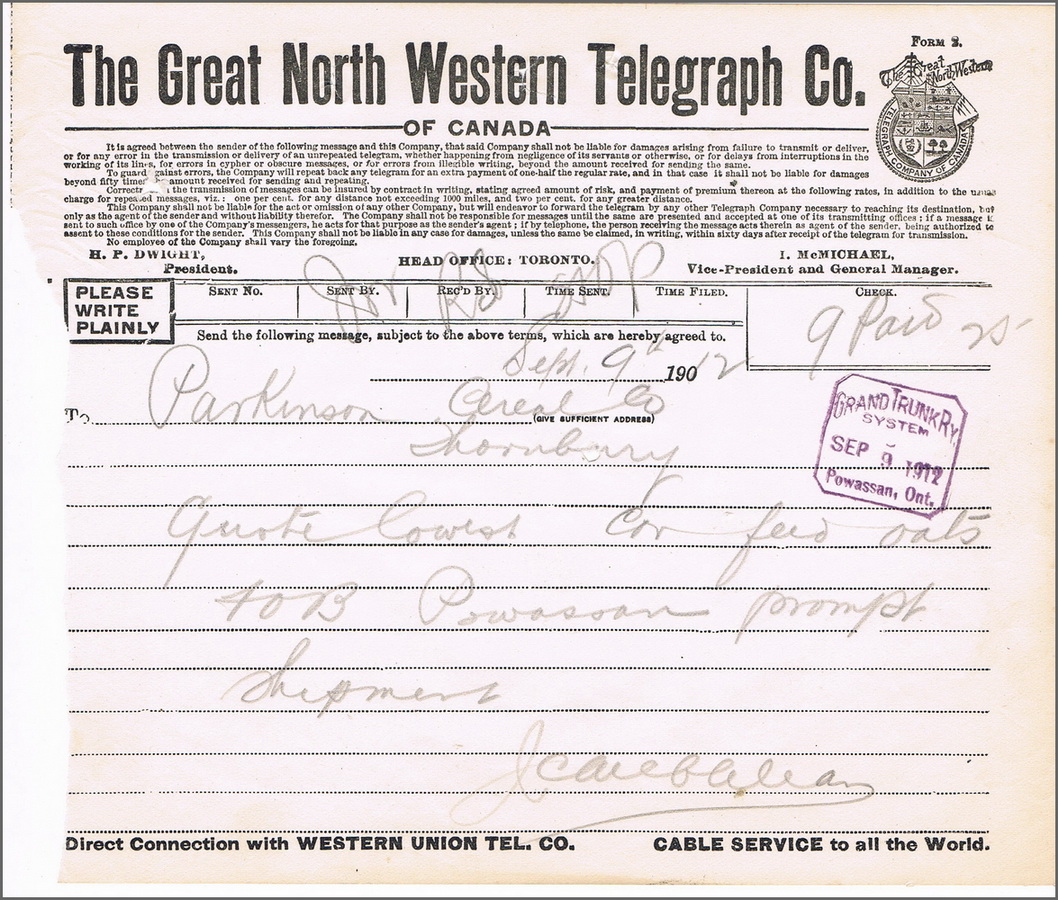 Form 2.
The Great North Western Telegraph Co.
OF CANADA
The Great North Western
TELEGRAPH COMPANY OF CANADA
It is agreed between the sender of the following message and this Company, that said Company shall not be liable for damages arising from failure to transmit or deliver,
or for any error in the transmission or delivery of an unrepeated telegram, whether happening from negligence of its servants or otherwise, or for delays from interruptions in the
working of its lines, for errors in cypher or obscure messages, or for errors from illegible writing, beyond the amount received for sending the same.
To guard gainst errors, the Company will repeat back any telegram for an extra payment of one-half the regular rate, and in that case it shall not be liable for damages
beyond fifty times amount received for sending and repeating.
Correct the transmission of messages can be insured by contract in writing, stating agreed amount of risk, and payment of premium thereon at the following rates, in addition to the
charge for repeated messages, viz.: one per cent. for any distance not exceeding 1000 miles, and two per cent. for any greater distance.
This Company shall not be liable for the act or omission of any other Company, but will endeavor to forward the telegram by any other Telegraph Company necessary to reaching its destination, but
only as the agent of the sender and without liability therefor. The Company shall not be responsible for messages until the same are presented and accepted at one of its transmitting offices; if a message is
sent to such office by one of the Company's messengers, he acts for that purpose as the sender's agent; if by telephone, the person receiving the message acts therein as agent of the sender, being authorized to
assent to these conditions for the sender. This Company shall not be liable in any case for damages, unless the same be claimed, in writing, within sixty days after receipt of the telegram for transmission.
No employee of the Company shall vary the foregoing.
H. P. DWIGHT,
President.
HEAD OFFICE: TORONTO.
I. McMICHAEL,
Vice-President and General Manager.
PLEASE
WRITE
PLAINLY
Sent No. Sent By. Rec'd By. Time Sent. Time Filed. Check.
9 Paid 25
Send the following message, subject to the above terms, which are hereby agreed to.
Sept. 9th 190 12
To Parkinson Cereal Co
(GIVE SUFFICIENT ADDRESS)
Thornbury
GRAND TRUNK RY.
SYSTEM
SEP 9 1912
Powassan, Ont.
Quote lowest Car feed oats
FOB Powassan prompt
Shipment
Direct Connection with WESTERN UNION TEL. CO.
CABLE SERVICE to all the World.